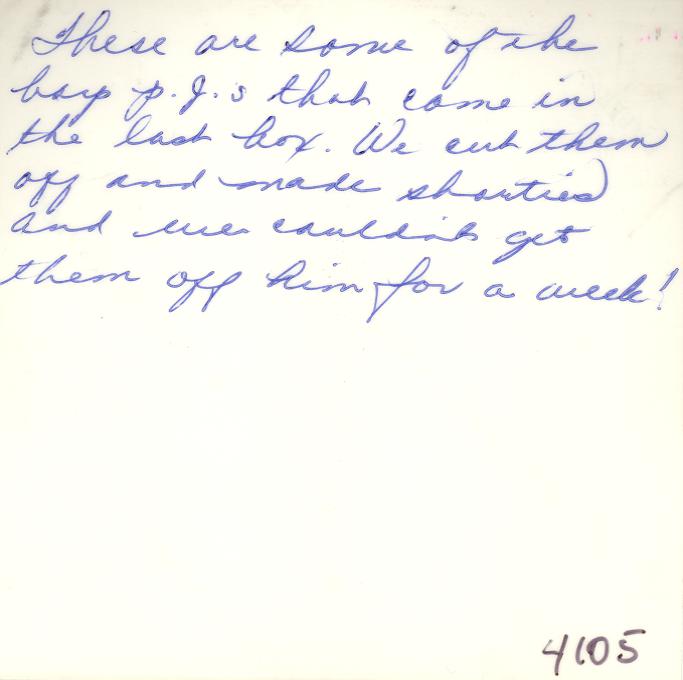 These are some of the
boys p.J.'s that came in
the last box. We cut them
off and made shorties
and we couldn't get
them off him for a week!
4105